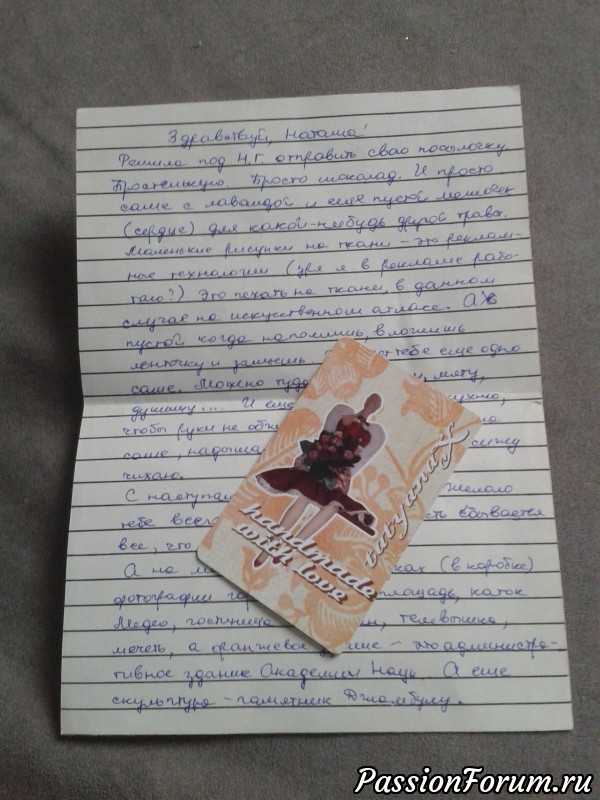 Здравствуй, Наташа!
Решила под Н.Г. отправить свою посылочку.
Простенькую. Просто шоколад. И просто
саше с лавандой и ещё пустой мешочек
(сердце) для какой-нибудь другой травы.
Маленькие рисунки на ткани – это реклам-
ные технологии (зря я в рекламе рабо-
таю?) Это печать на ткани, в данном
случае на искусственном атласе. А
пустой когда наполнишь, вложишь
ленточку и зашьёшь тебе еще одно
саше. Можно туда мяту,
душицу.... И
чтобы руки не
саше, сижу
чихаю.
С желаю
тебе сбывается
все, что
А на (в коробке)
фотографии площадь, каток
Медео, гостиница телевышка,
мечеть, а оранжевое – это администра-
тивное здание Академии Наук. А еще
скульптура – памятник Джамбулу.
tatyanaK
handmade
with love
PassionForum.ru